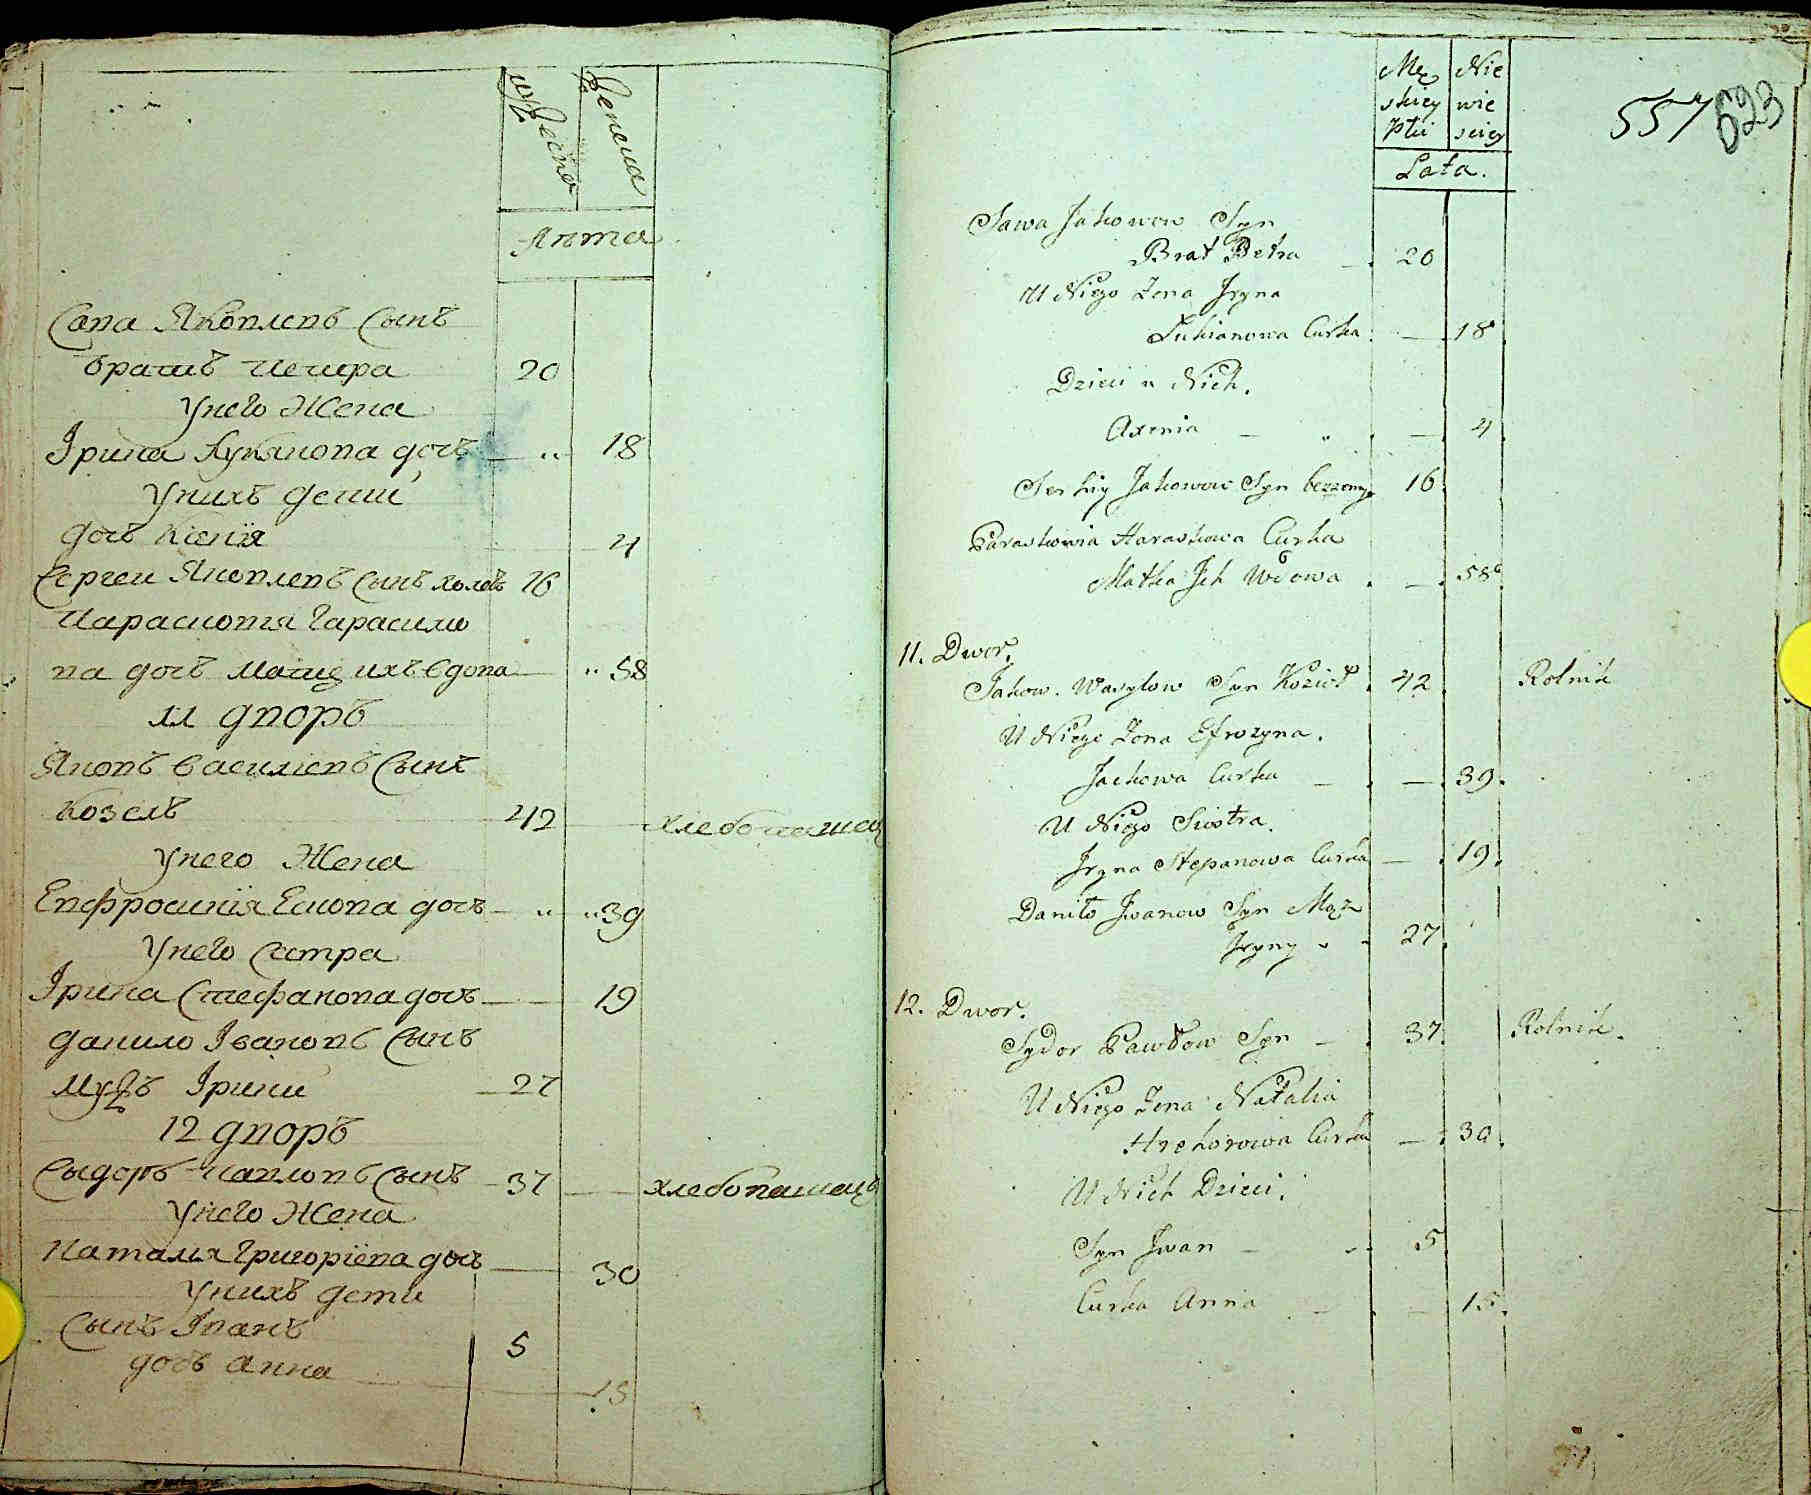 мужеска
женска
Лѣта
Сава Яковлевъ Сынъ
братъ петра
20
Унего Жена
Ірина Лукянова дочъ 18
Унихъ дети
дочъ Ксенія 4
Сергеи Яковлевъ Сынъ холостъ 16
Парасковия Гарасимо
ва дочъ мати ихъ вдова 58
11 дворъ
Яковъ василіевъ Сынъ
козелъ 42 хлебопашецъ
Унего Жена
Евфросинія Ескова дочъ 39
Унего Сестра
Ірина Стефанова дочъ 19
данило Івановъ Сынъ
мужъ Ірини 27
12 дворъ
Сыдоръ павловъ Сынъ 37 хлебопашецъ
Унего Жена
Наталия Григоріева дочъ 30
Унихъ дети
Сынъ Іванъ 5
дочъ анна 15
Mę Nie
skiey wie
Płci sciey
557 623
Lata.
Sawa Jakowow Syn
Brat Petra 20
U Niego Żona Jryna
Łukianowa Curka 18
Dzieci u Nich.
Axenia 4
Serhiy Jakowow Syn bezzenny 16
Paraskowia Haraskowa Curka
Matka Jch Wdowa 58
11. Dwor.
Jakow Wasylow Syn Kozioł 42 Rolnik
U Niego Żona Efrozyna.
Jackowa Curka 39.
U Niego Siostra.
Jryna Stepanowa Curka 19.
Daniło Jwanow Syn Mąż
Jryny 27
12. Dwor.
Sydor Pawłow Syn 37 Rolnik.
U Niego Żona Natalia
Hrehorowa Curka 30.
U Nich Dzieci.
Syn Jwan 5
Curka Anna 15.